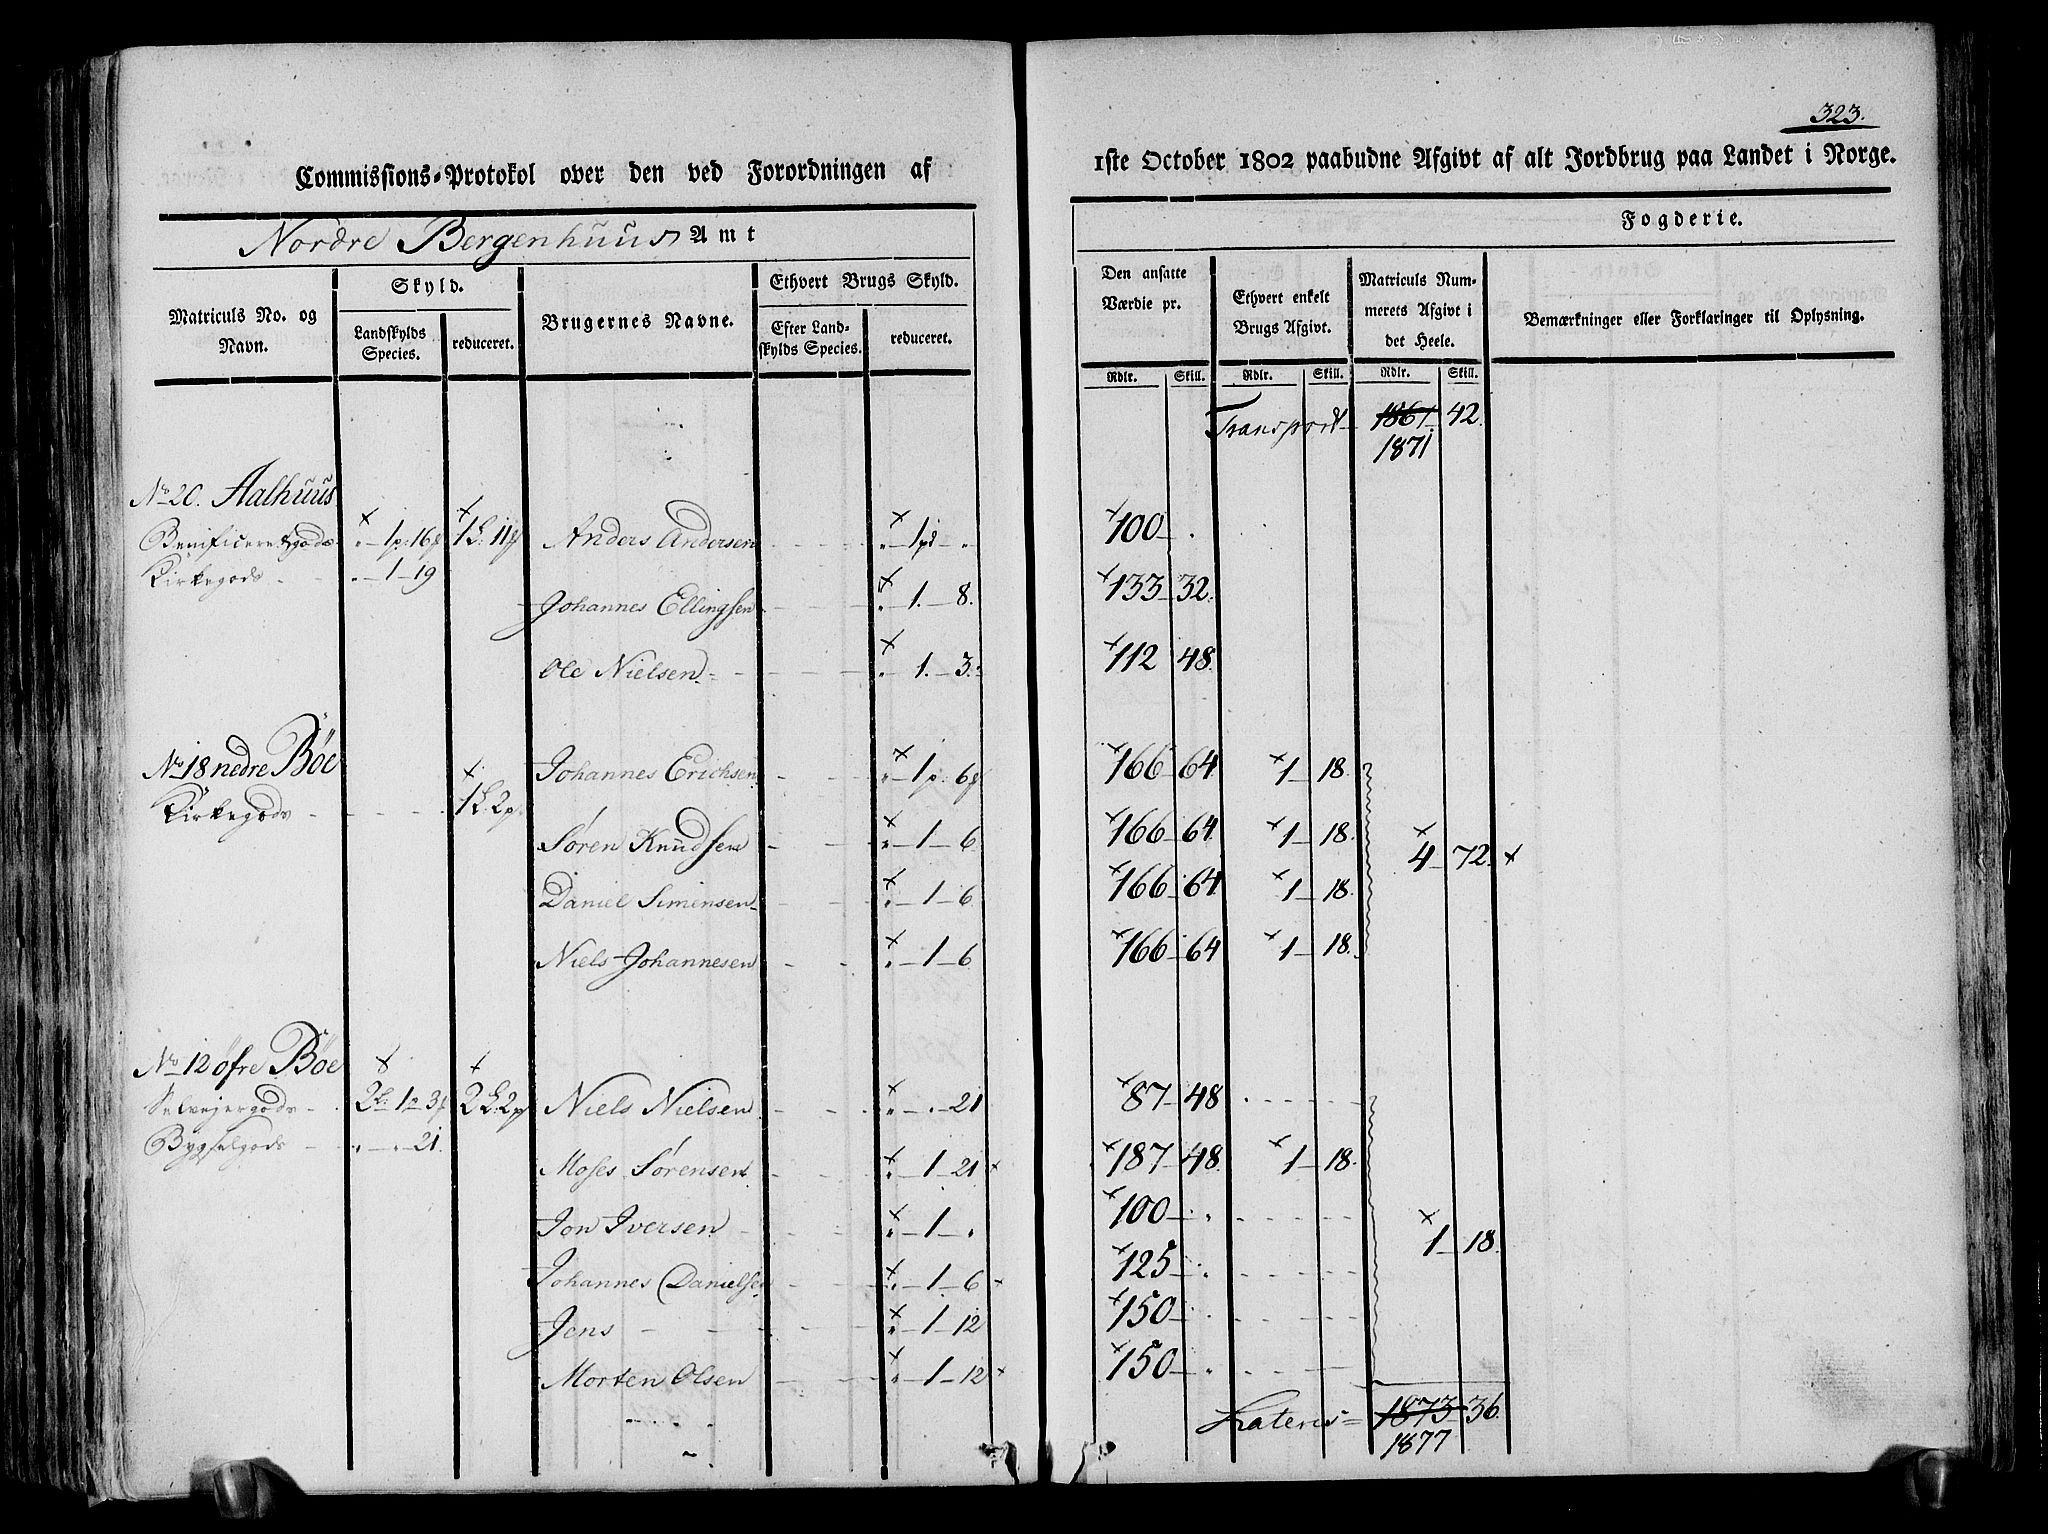 323.
Commissions-Protokol over den ved Forordningen af 1ste October 1802 paabudne Afgivt af alt Jordbrug paa Landet i Norge.
Nordre Bergenhuus Amt
Fogderie.
Matriculs No. og Navn.
Skyld.
Landskylds Species.
reduceret.
Brugernes Navne.
Ethvert Brugs Skyld.
Efter Landskylds Species.
reduceret.
Den ansatte Værdie pr.
Ethvert enkelt Brugs Afgivt.
Matriculs Nummerets Afgivt i det Heele.
Bemærkninger eller Forklaringer til Oplysning.
Rdlr. Skill. Rdlr. Skill. Rdlr. Skill.
Transport 1861 42.
1871
No 20. Aalhuus
Benificeretgods - 1p: 16f 1L: 11f Anders Andersen " - 1pd - " 100 - .
Kirkegods - " - 1 - 19
Johannes Ellingsen " 1. - 8. 133 - 32.
Ole Nielsen " 1. - 3. 112 48.
No 18 nedre Böe Johannes Erichsen " - 1p: 6f 166 - 64 1 - 18.
Kirkegods - 1L. 2p.
Søren Knudsen " - 1 - 6 166 - 64 1 - 18. 4 - 72.
Daniel Simensen " - 1 - 6 166 - 64 1 - 18.
Niels Johannesen " - 1 - 6 166 - 64 1 - 18.
No 12 öfre Böe
Selvejergods - 2L: 1p 3f 2L: 2p Niels Nielsen " - . - 21 87 - 48
Bygselgods - " - " 21.
Moses Sørensen " - 1 - 21 187 - 48 1 - 18.
Jon Iversen " - 1 - " 100 - . 1 - 18.
Johannes Danielsen " - 1 - 6 125 - .
Jens " - 1 - 12 150 - .
Morten Olsen " - 1 - 12 150 - .
Lateris 1873 - 36.
1877